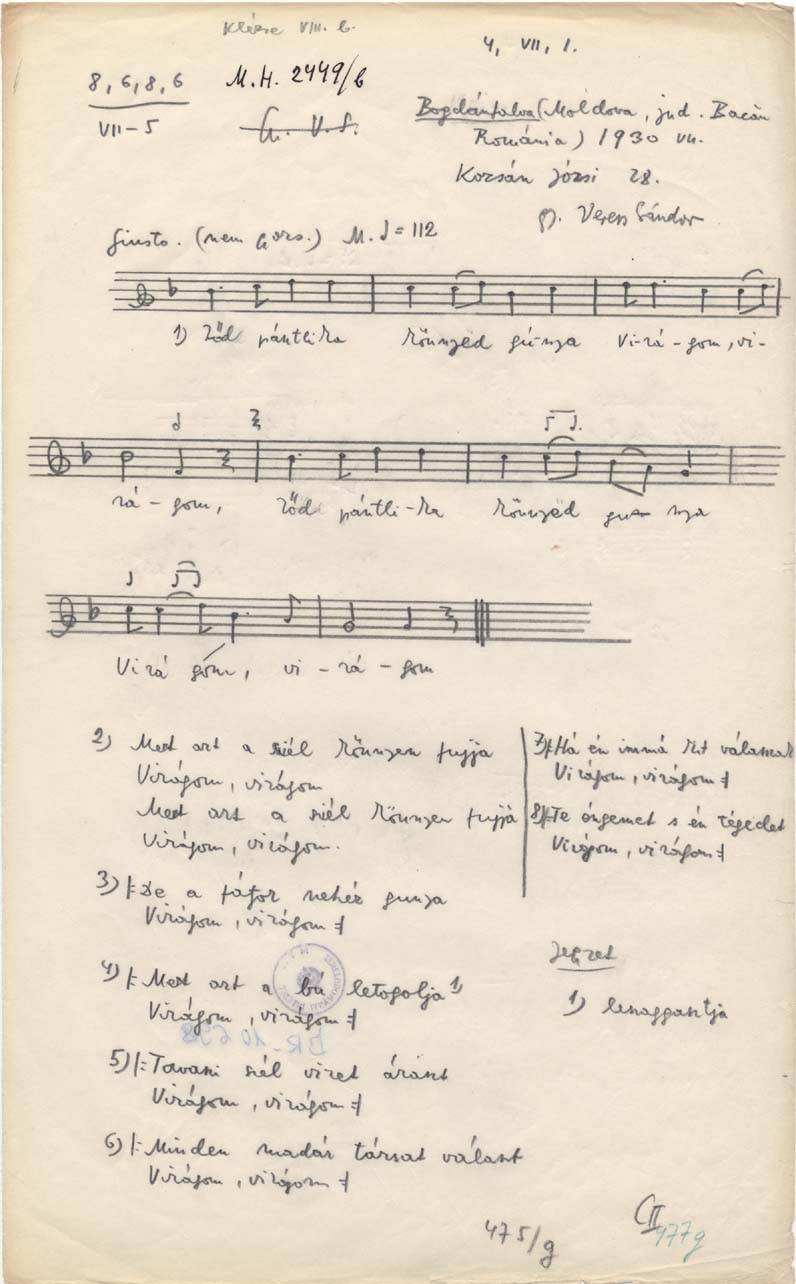 Klézse VIII. b.
4, VII, 1.
8, 6, 8, 6
VII-5
M.H. 2449/b
Bogdánfalva (Moldova, jud. Bacău
România) 1930 VII.
Kozsán Józsi 28.
gy. Veress Sándor
Giusto. (nem gyors.) M. ♩= 112
1) Zöd pántlika könnyëd gúnya Vi-rá-gom, vi-
rá-gom, zöd pántli-ka könnyëd gu- nya
Virá gom, vi-rá-gom
2) Mert azt a szél könnyen fujja
Virágom, virágom
Mert azt a szél könnyen fujja
Virágom, virágom.
3) |: De a fátyor nehéz gunya
Virágom, virágom :|
4) |: Mert azt a bú letogolja 1)
Virágom, virágom :|
5) |: Tavaszi szél vizet áraszt
Virágom, virágom :|
6) |: Minden madár társat választ
Virágom, virágom :|
7) |: Há én immá kit válasszak
Virágom, virágom :|
8) |: Te éngemet s én tégedet
Virágom, virágom :|
Jegyzet
1) lenaggasztja
BR-10638
475/g
CII
477g